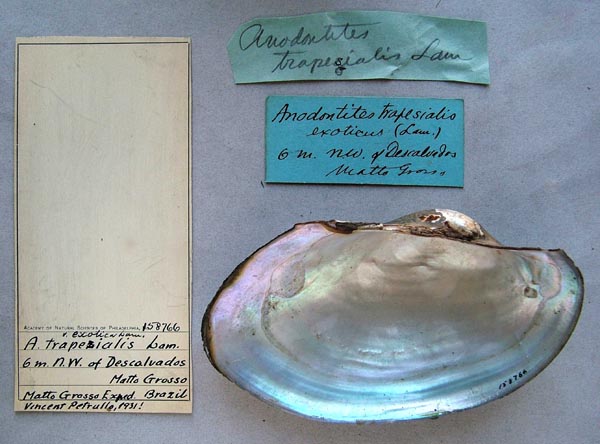 Anodontites
trapesialis Lam
Anodontites trapesialis
exoticus (Lam.)
6 m. N.W. of Descalvados
Matto Grosso
ACADEMY OF NATURAL SCIENCES OF PHILADELPHIA, 158766
v. exotica Lam.
A. trapesialis Lam.
6 m. N.W. of Descalvados
Matto Grosso
Matto Grosso Exped. Brazil
Vincent Petrullo, 1931!
158766